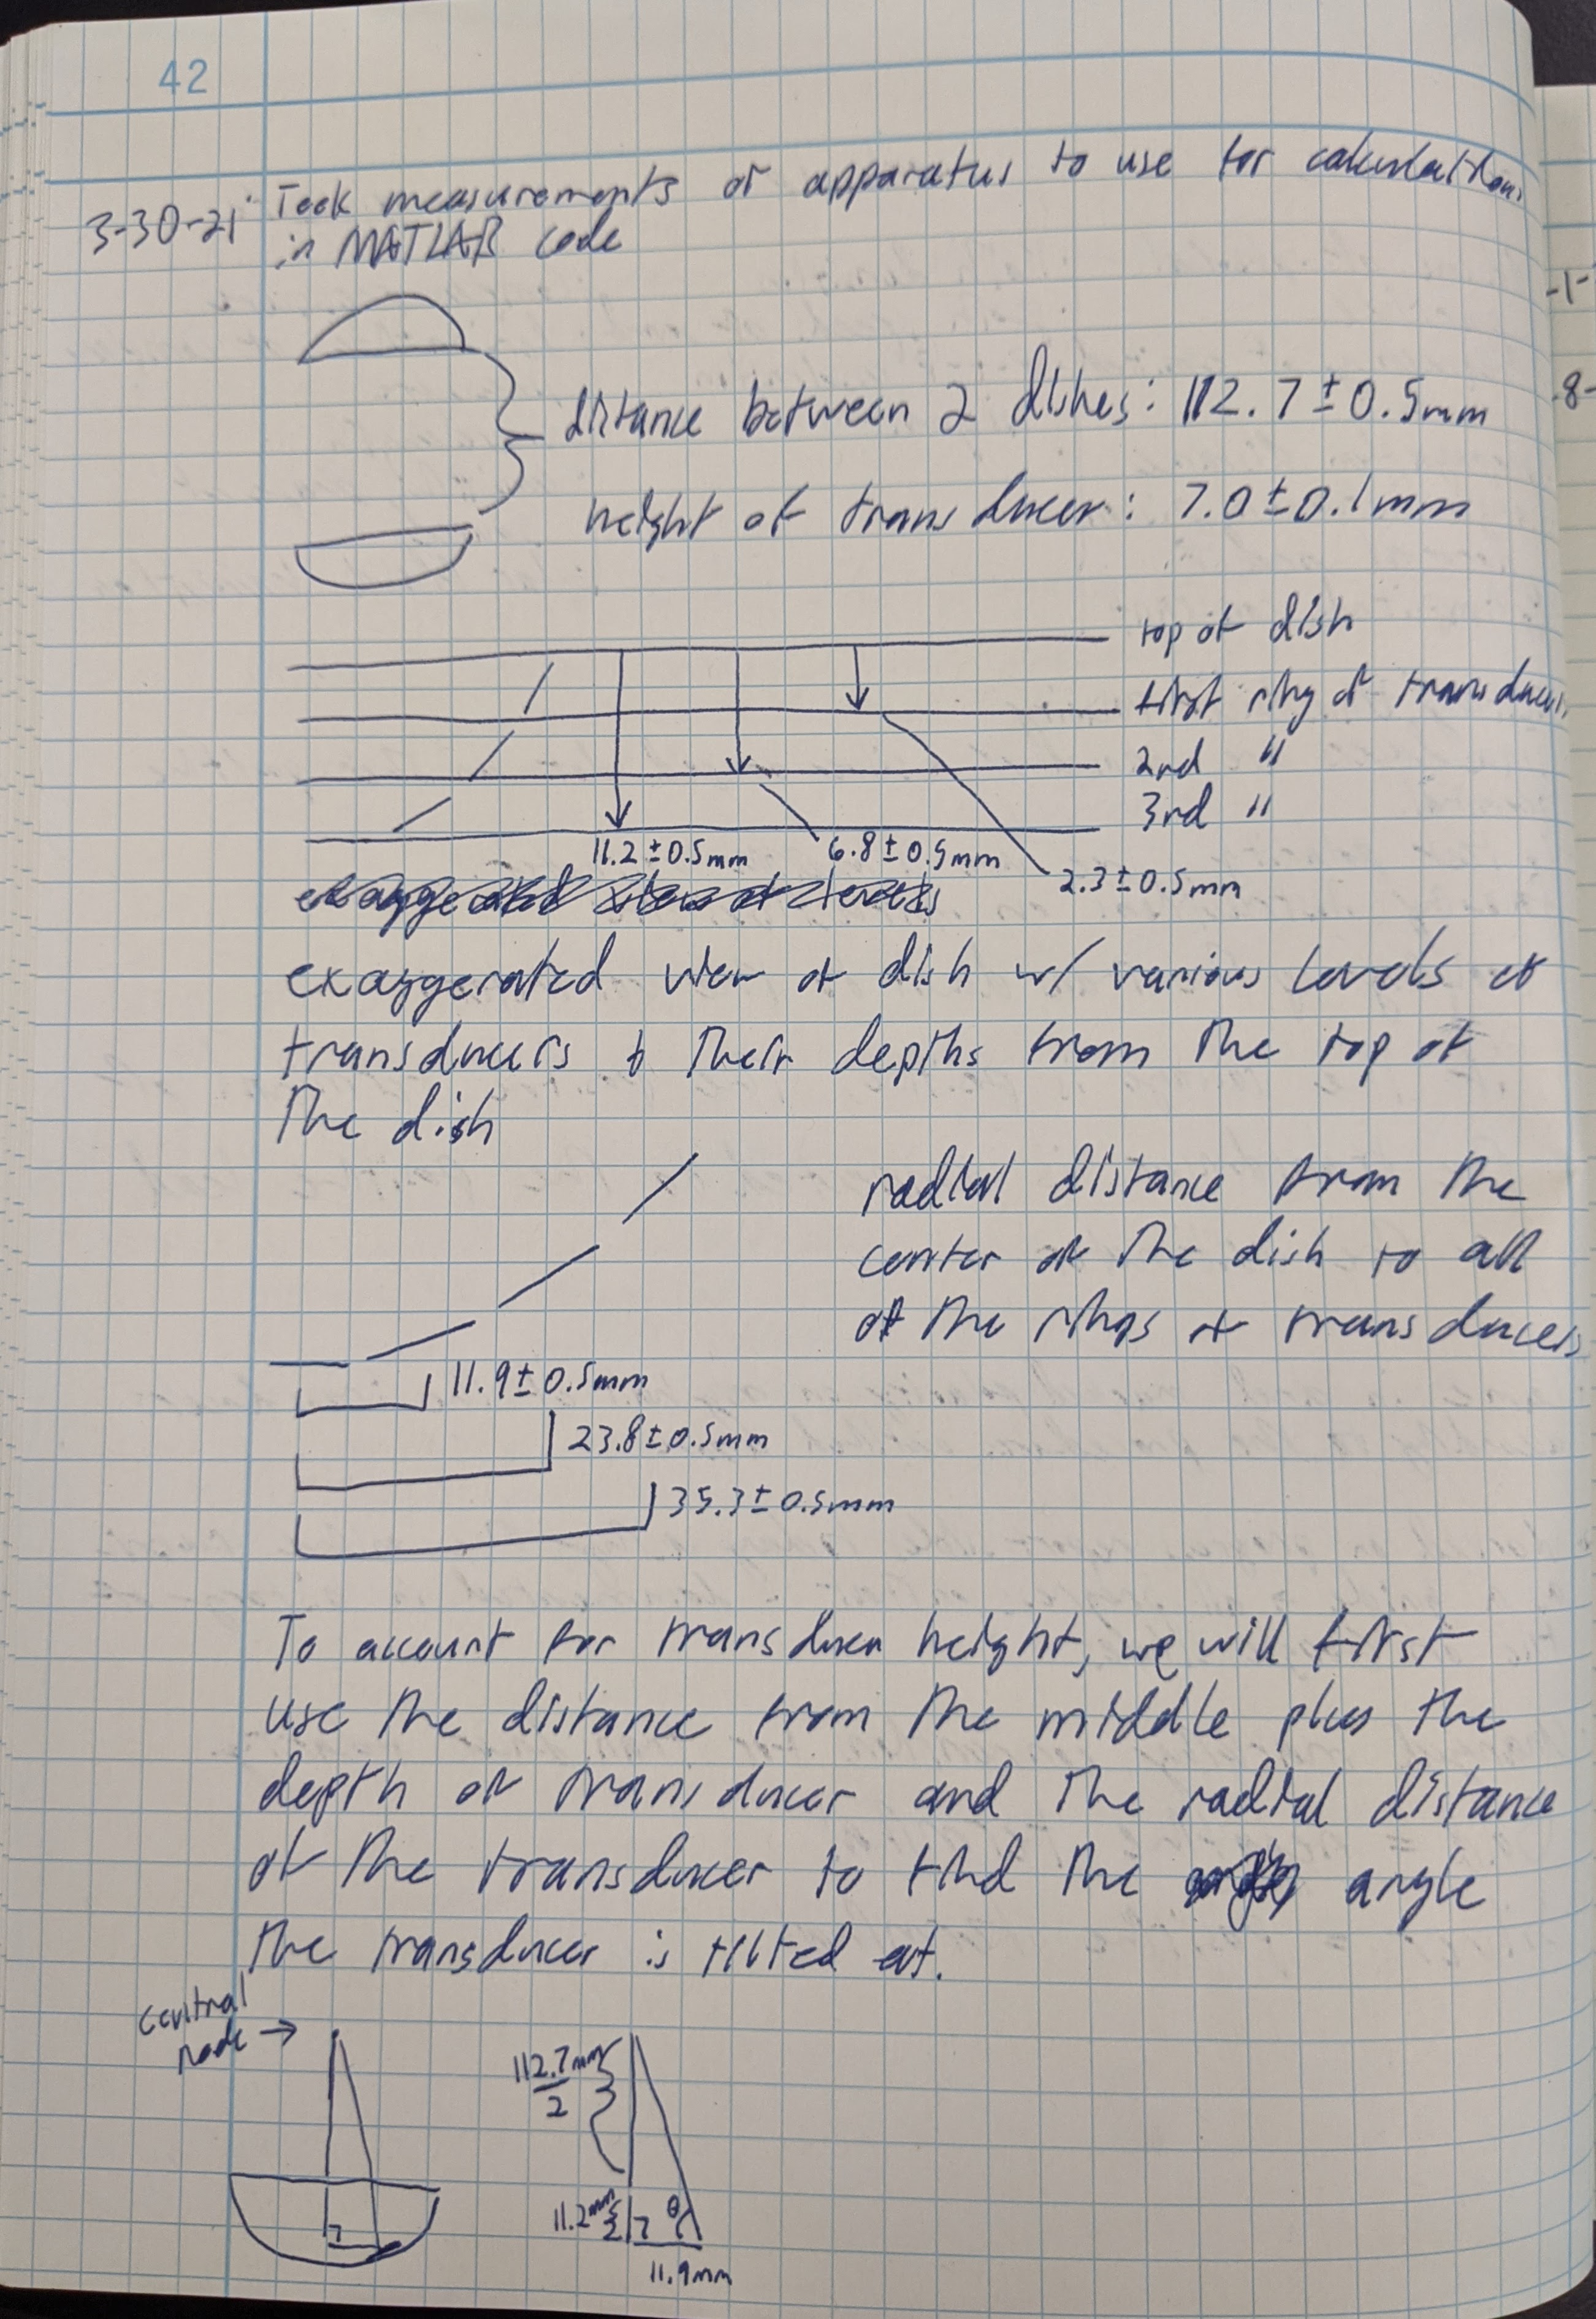 42
3-30-21 Took measurements of apparatus to use for calculations
in MATLAB code
distance between 2 dishes: 112.7 ± 0.5mm
height of transducer: 7.0 ± 0.1mm
top of dish
first ring of transducers
2nd "
3rd "
11.2 ± 0.5mm 6.8 ± 0.5mm 2.3 ± 0.5mm
exaggerated view of dish w/ various levels of
transducers & their depths from the top of
the dish
radial distance from the
center of the dish to all
of the rings of transducers
11.9 ± 0.5mm
23.8 ± 0.5mm
35.3 ± 0.5mm
To account for transducer height, we will first
use the distance from the middle plus the
depth of transducer and the radial distance
of the transducer to find the angle
the transducer is tilted at.
central
node →
112.7mm
2
11.2mm θ
11.9mm
-1-
-8-